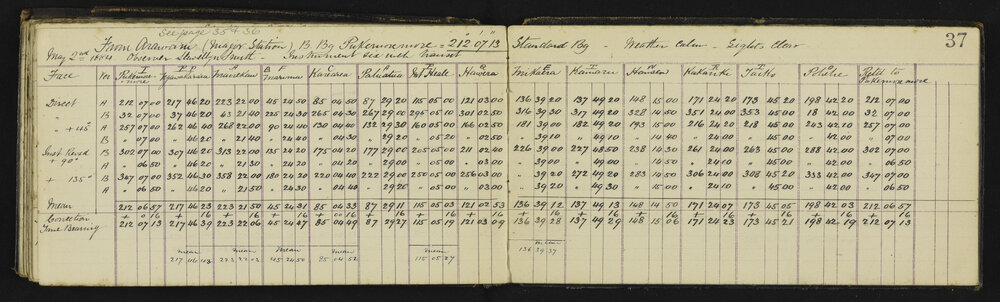 See page 35 & 36
37
From Arawaru (Major Station) B. Bg Pukemoremore = 212° 07' 13" Standard Bg - Weather Calm - Lights Clear
May 2nd 1884 Observer Llewellyn Smith - Instrument 6in with transit
Face I Pukemore-more Ngawakaraua Maurekau Maruma Karaerea Patuatua Hot Heale Hawera Mikaera Hamaru Hansen Kakariki Taiko Poldie Retd to Pukemoremore
Direct A 212 07 00 217 46 20 223 22 00 45 24 50 85 04 50 87 29 20 115 05 00 121 03 00 136 39 20 137 49 20 148 15 00 171 24 20 173 45 20 198 42 20 212 07 00
" B 32 07 00 37 46 20 63 21 40 225 24 30 265 04 30 267 29 00 295 05 10 301 02 50 316 39 30 317 49 20 328 14 50 351 24 00 353 45 00 18 42 00 32 07 00
" + 45° A 257 07 00 262 46 40 268 22 00 90 24 40 130 04 40 132 29 30 160 05 00 166 02 50 181 39 00 182 49 20 193 15 00 216 24 20 218 45 00 243 42 10 257 07 00
" B " 07 00 " 46 20 " 21 40 " 24 40 " 04 30 " 29 20 " 05 20 " 02 50 " 39 10 " 49 10 " 14 40 " 24 00 " 45 00 " 42 00 " 07 00
Inst Revsd + 90° B 302 07 00 307 46 20 313 22 00 135 24 20 175 04 20 177 29 00 205 05 00 211 02 40 226 39 00 227 48 50 238 14 30 261 24 00 263 45 00 288 42 00 302 07 00
A " 06 50 " 46 20 " 21 30 " 24 20 " 04 20 " 29 00 " 05 00 " 03 00 " 39 00 " 49 00 " 14 50 " 24 10 " 45 00 " 42 00 " 06 50
+ 135° B 347 07 00 352 46 30 358 22 00 180 24 20 220 04 40 222 29 00 250 05 00 256 03 00 " 39 20 272 49 20 283 14 50 306 24 00 308 45 20 333 42 00 347 07 00
A " 06 50 " 46 20 " 21 50 " 24 30 " 04 40 " 29 20 " 05 00 " 03 00 " 39 20 " 49 30 " 15 00 " 24 10 " 45 00 " 42 00 " 06 50
Mean 212 06 57 217 46 23 223 21 50 45 24 31 85 04 33 87 29 11 115 05 03 121 02 53 136 39 12 137 49 13 148 14 50 171 24 07 173 45 05 198 42 03 212 06 57
Correction + 16 + 16 + 16 + 16 + 16 + 16 + 16 + 16 + 16 + 16 + 16 + 16 + 16 + 16 + 16
True Bearing 212 07 13 217 46 39 223 22 06 45 24 47 85 04 49 87 29 27 115 05 19 121 03 09 136 39 28 137 49 29 148 15 06 171 24 23 173 45 21 198 42 19 212 07 13
mean mean mean mean mean mean
217 46 43 223 22 03 45 24 50 85 04 52 115 05 27 136 39 37